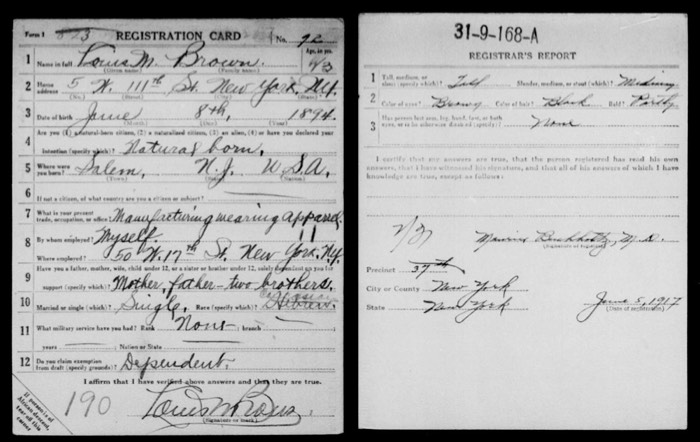 Form 1 REGISTRATION CARD No. 92
1 Name in full Louis M. Brown. Age, in yrs. 23
(Given name) (Family name)
2 Home address 5 W. 111th St. New York, N.Y.
(No.) (Street) (City) (State)
3 Date of birth June 8th, 1894.
(Month) (Day) (Year)
4 Are you (1) a natural-born citizen, (2) a naturalized citizen, (3) an alien, (4) or have you declared your
intention (specify which)? Natural born.
5 Where were you born? Salem, N.J. U.S.A.
(Town) (State) (Nation)
6 If not a citizen, of what country are you a citizen or subject?
7 What is your present trade, occupation, or office? Manufacturing wearing apparel
8 By whom employed? Myself
Where employed? 50 W. 17th St. New York, N.Y.
9 Have you a father, mother, wife, child under 12, or a sister or brother under 12, solely dependent on you for
support (specify which)? Mother, father - two brothers.
10 Married or single (which)? Single, Race (specify which)?
11 What military service have you had? Rank None branch
years Nation or State
12 Do you claim exemption from draft (specify grounds)? Dependent.
I affirm that I have verified above answers and that they are true.
190 Louis M Brown.
(Signature or mark)
If person is of African descent, tear off this corner
31-9-168-A
REGISTRAR'S REPORT
1 Tall, medium, or short (specify which)? Tall Slender, medium, or stout (which)? Medium
2 Color of eyes? Brown Color of hair? Black Bald? Partly
3 Has person lost arm, leg, hand, foot, or both eyes, or is he otherwise disabled (specify)? None
I certify that my answers are true, that the person registered has read his own
answers, that I have witnessed his signature, and that all of his answers of which I have
knowledge are true, except as follows:
M.D.
(Signature of registrar)
Precinct 37th
City or County New York
State New York June 5, 1917
(Date of registration)